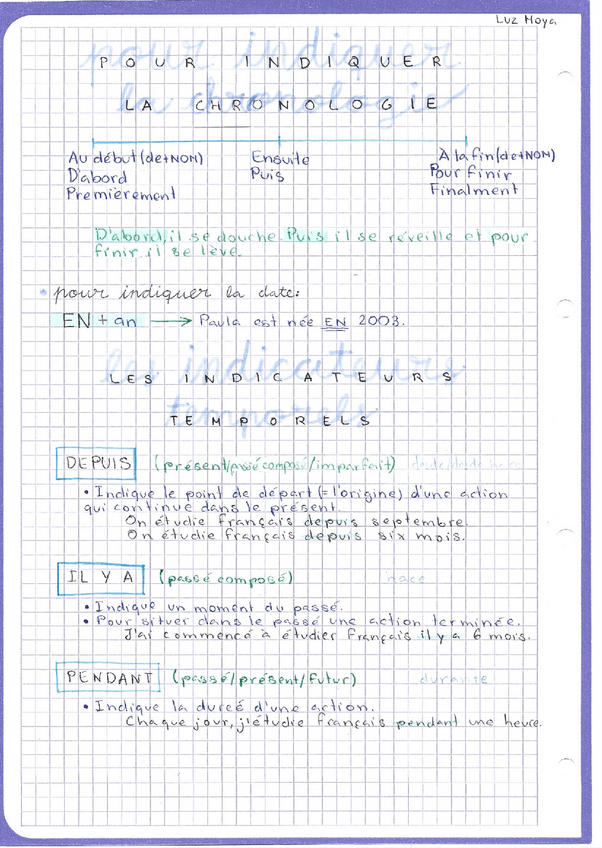 Luz Moya
pour indiquer
POUR INDIQUER
la chronologie
LA CHRONOLOGIE
Au début (de+NON) Ensuite À la fin (de+NON)
D'abord Puis Pour finir
Premièrement Finalment
D'abord, il se douche. Puis il se réveille et pour
finir il se lève.
• pour indiquer la date:
EN + an → Paula est née EN 2003.
les indicateurs
LES INDICATEURS
temporels
TEMPORELS
DEPUIS (présent/passé composé/imparfait) desde/desde hace
• Indique le point de départ (= l'origine) d'une action
qui continue dans le présent.
On étudie français depuis septembre.
On étudie français depuis six mois.
IL Y A (passé composé) hace
• Indique un moment du passé.
• Pour situer dans le passé une action terminée.
J'ai commencé à étudier français il y a 6 mois.
PENDANT (passé/présent/futur) durante
• Indique la dureé d'une action.
Chaque jour, j'étudie français pendant une heure.